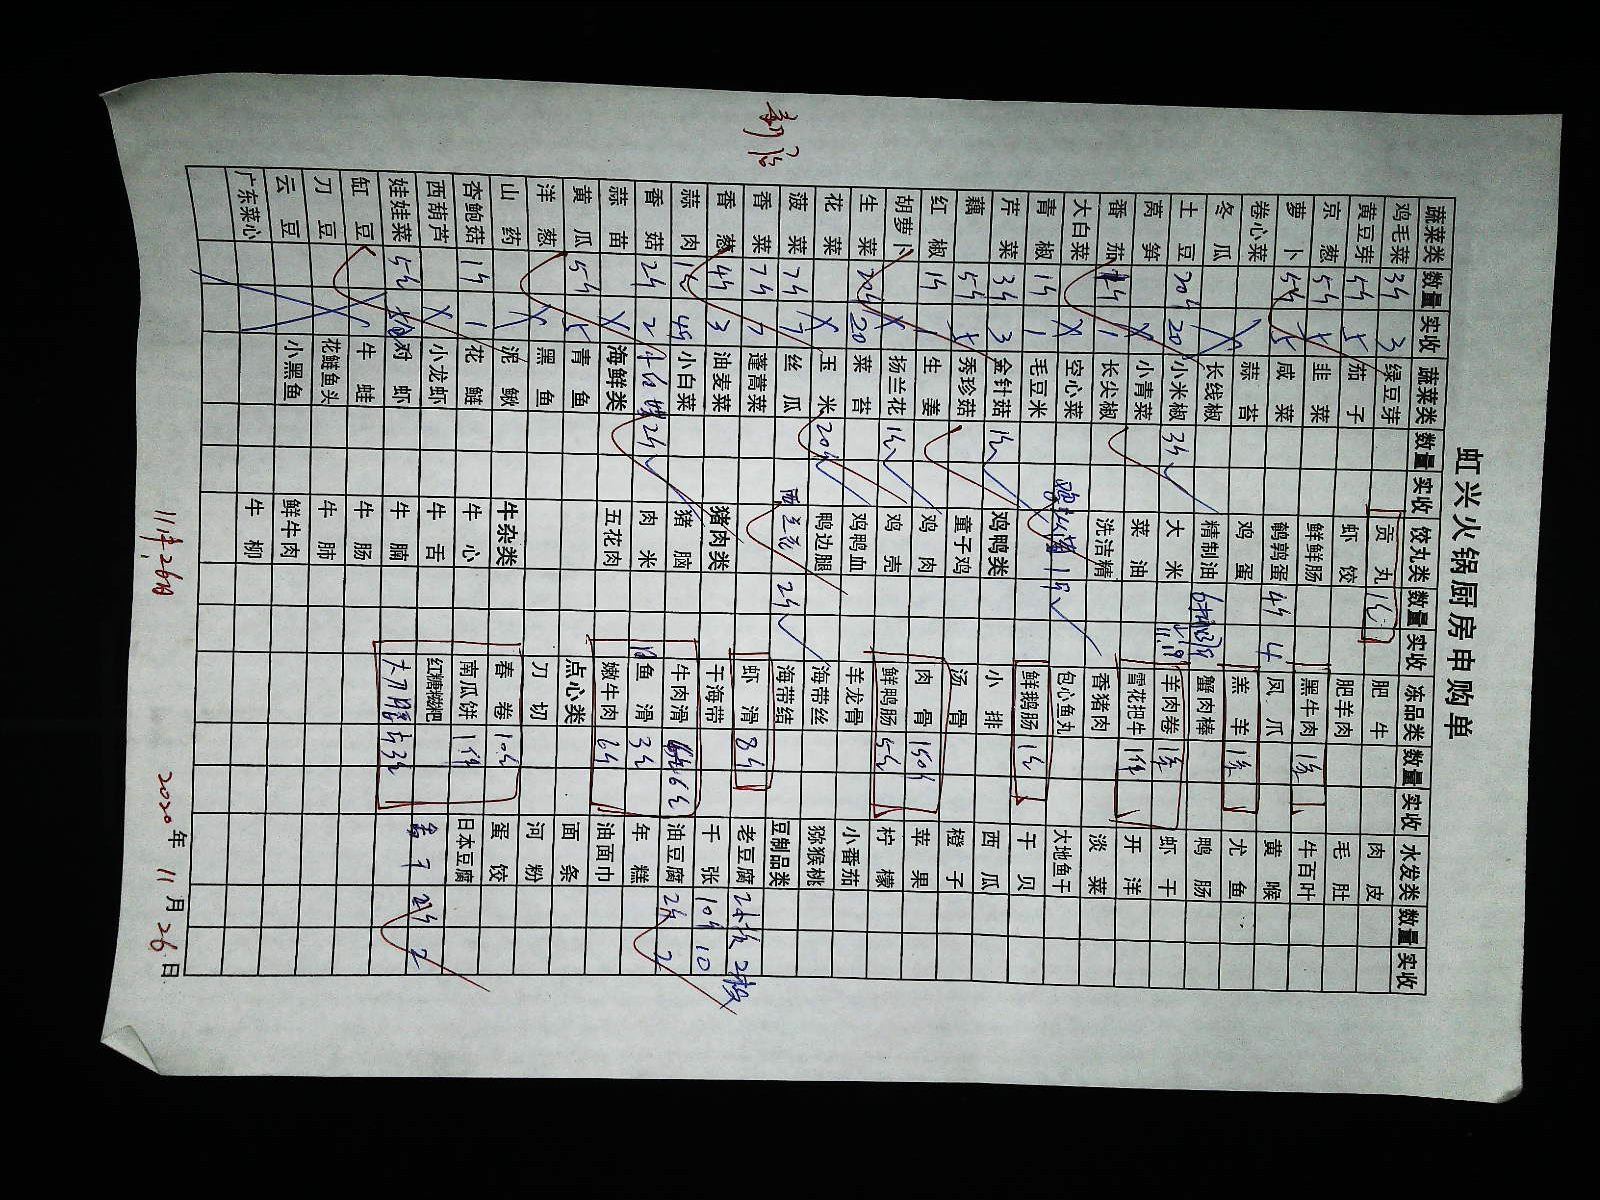 虹兴火锅厨房申购单
蔬菜类 数量 实收 蔬菜类 数量 实收 饺丸类 数量 实收 冻品类 数量 实收 水发类 数量 实收
鸡毛菜 3斤 3 绿豆芽 贡丸 1包 肥牛 肉皮
黄豆芽 5斤 5 茄子 虾饺 肥羊肉 毛肚
京葱 5斤 5 韭菜 鲜鲜肠 黑牛肉 1条 牛百叶
萝卜 5斤 5 咸菜 鹌鹑蛋 4斤 4 凤爪 黄喉
卷心菜 蒜苔 鸡蛋 羔羊 1条 尤鱼
冬瓜 长线椒 精制油 蟹肉棒 鸭肠
土豆 20斤 20 小米椒 3斤 大米 羊肉卷 1条 虾干
莴笋 小青菜 菜油 雪花把牛 1件 开洋
番茄 1 长尖椒 洗洁精 香猪肉 淡菜
大白菜 空心菜 包心鱼丸 大地鱼干
青椒 1斤 1 毛豆米 鲜鹅肠 1包 干贝
芹菜 3斤 3 金针菇 1包 鸡鸭类 小排 西瓜
藕 5斤 5 秀珍菇 童子鸡 汤骨 橙子
红椒 1斤 1 生姜 鸡肉 肉骨 15斤 苹果
胡萝卜 扬兰花 1包 鸡壳 鲜鸭肠 5包 柠檬
生菜 20斤 20 菜苔 鸡鸭血 羊龙骨 小番茄
花菜 玉米 20斤 鸭边腿 海带丝 猕猴桃
菠菜 7斤 7 丝瓜 西兰花 2斤 海带结 豆制品类
香菜 7斤 7 蓬蒿菜 虾滑 8斤 老豆腐 2板 2板
香葱 4斤 3 油麦菜 猪肉类 干海带 千张 10斤 10
蒜肉 小白菜 猪脑 牛肉滑 6包 油豆腐 2斤 2
香菇 2斤 2 2斤 肉米 鱼滑 3包 年糕
蒜苗 海鲜类 五花肉 嫩牛肉 6斤 油面巾
黄瓜 5斤 5 青鱼 点心类 面条
洋葱 黑鱼 刀切 河粉
山药 泥鳅 牛杂类 春卷 10包 蛋饺
杏鲍菇 1斤 1 花鲢 牛心 南瓜饼 1件 日本豆腐
西葫芦 小龙虾 牛舌 红糖糍粑
娃娃菜 5斤 对虾 牛腩 大刀腰片 3包
缸豆 牛蛙 牛肠
刀豆 花鲢鱼头 牛肺
云豆 小黑鱼 鲜牛肉
广东菜心 牛柳
11月26日
2020年11月26日